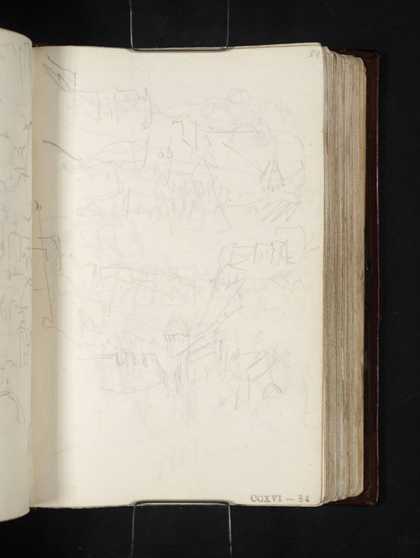 54
CCXVI — 54